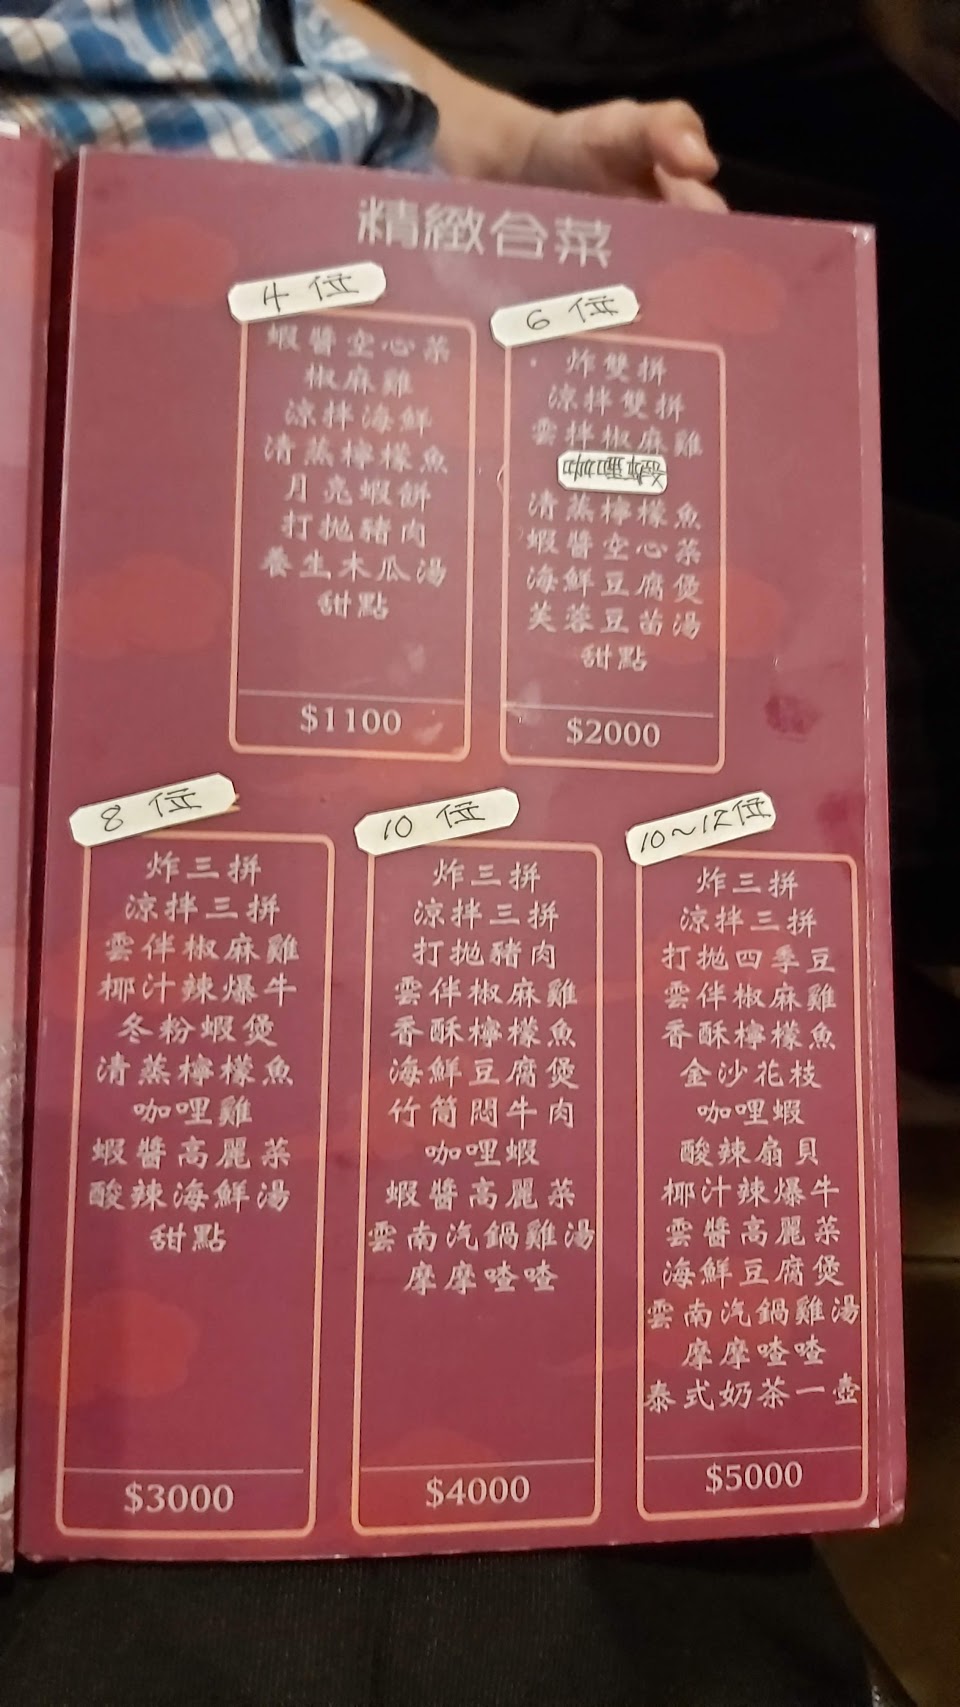 精緻合菜
4 位
蝦醬空心菜
椒麻雞
涼拌海鮮
清蒸檸檬魚
月亮蝦餅
打拋豬肉
養生木瓜湯
甜點
$1100
6 位
炸雙拼
涼拌雙拼
雲拌椒麻雞
清蒸檸檬魚
蝦醬空心菜
海鮮豆腐煲
芙蓉豆苗湯
甜點
$2000
8 位
炸三拼
涼拌三拼
雲伴椒麻雞
椰汁辣爆牛
冬粉蝦煲
清蒸檸檬魚
咖哩雞
蝦醬高麗菜
酸辣海鮮湯
甜點
$3000
10 位
炸三拼
涼拌三拼
打拋豬肉
雲伴椒麻雞
香酥檸檬魚
海鮮豆腐煲
竹筒悶牛肉
咖哩蝦
蝦醬高麗菜
雲南汽鍋雞湯
摩摩喳喳
$4000
10~12位
炸三拼
涼拌三拼
打拋四季豆
雲伴椒麻雞
香酥檸檬魚
金沙花枝
咖哩蝦
酸辣扇貝
椰汁辣爆牛
雲醬高麗菜
海鮮豆腐煲
雲南汽鍋雞湯
摩摩喳喳
泰式奶茶一壺
$5000